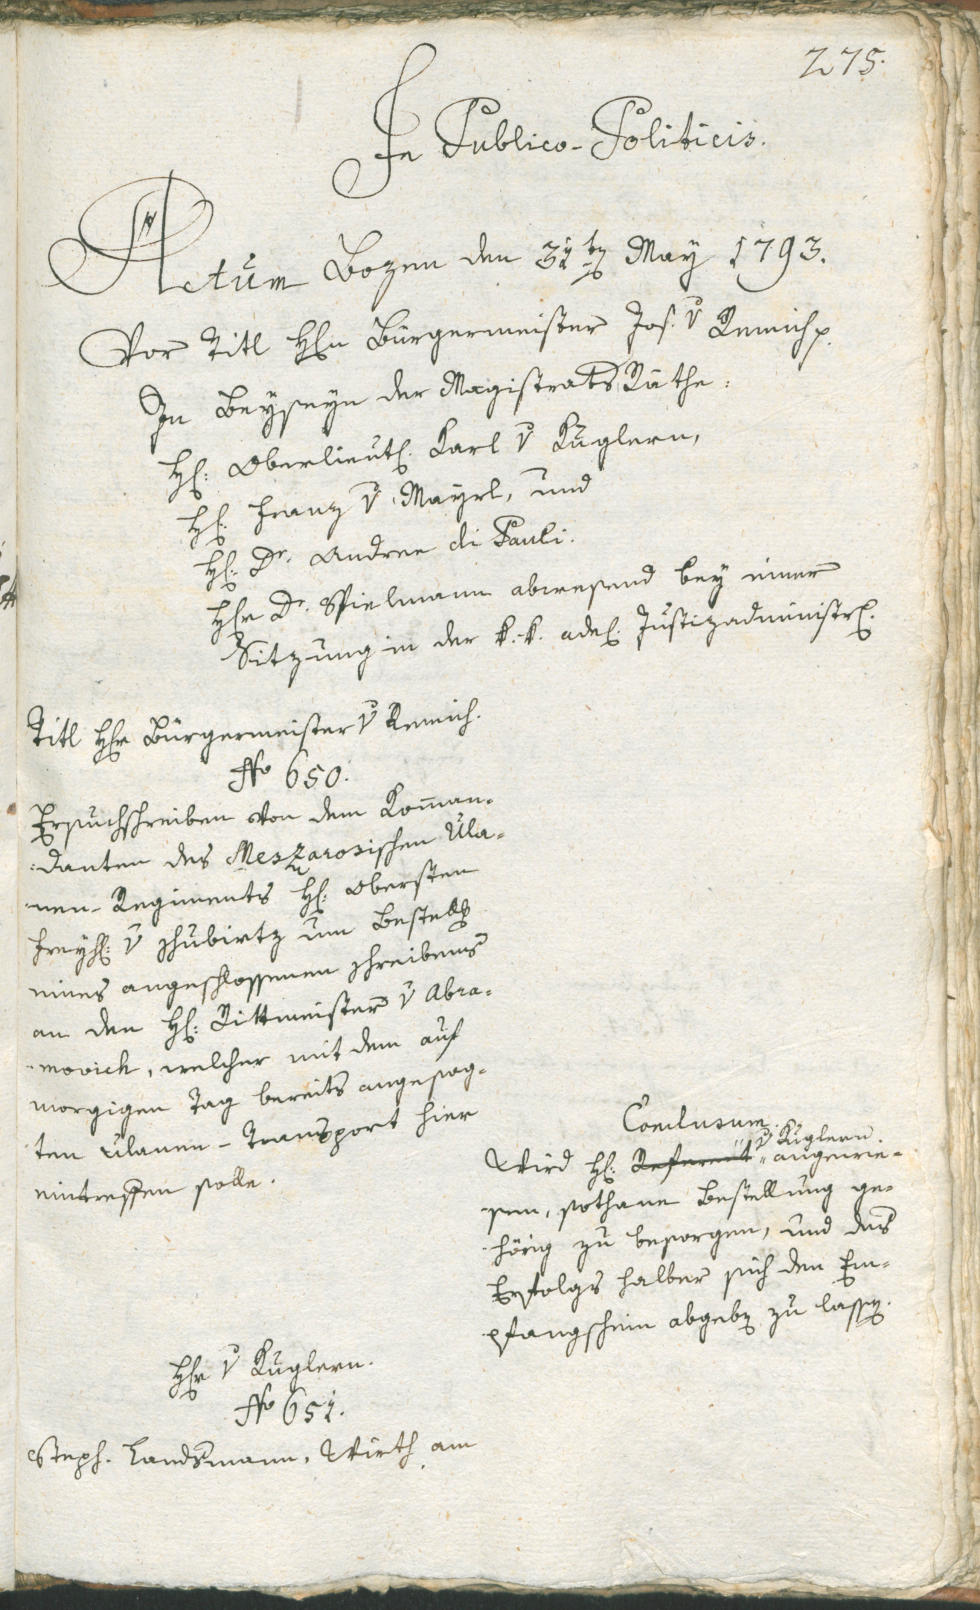 275.
In Publico-Politicis.
Actum Bozen den 31ten May 1793.
Vor Titl Hrn Bürgermeister Jos. v Remich p.
In Beyseyn der Magistrats Räthe:
H: Oberlieut. Karl v Kuglern,
H: Franz v Mayrl, und
H: Dr. Andree di Pauli.
Hr Dr. Spielmann abwesend bey einer
Sitzung in der k. k. adel. Justizadministr.
Titl Hr Bürgermeister v Remich.
No 650.
Ersuchschreiben von dem Komman-
danten des Meszarosischen Ula-
nen-Regiments H: Obersten
Freyh: v Shubirtz um Bestellg
eines angeschlossenen Schreibens
an den H: Rittmeister v Abra-
movich, welcher mit dem auf
morgigen Tag bereits angesag-
ten Ulanen-Transport hier
eintreffen solle.
Conclusum.
v Kuglern.
Wird H: Referent angewie-
sen, sothane Bestellung ge-
hörig zu besorgen, und des
Erfolgs halber sich den Em-
pfangschein abgeben zu lassen.
Hr v Kuglern.
No 651.
Steph. Landsmann, Wirth am